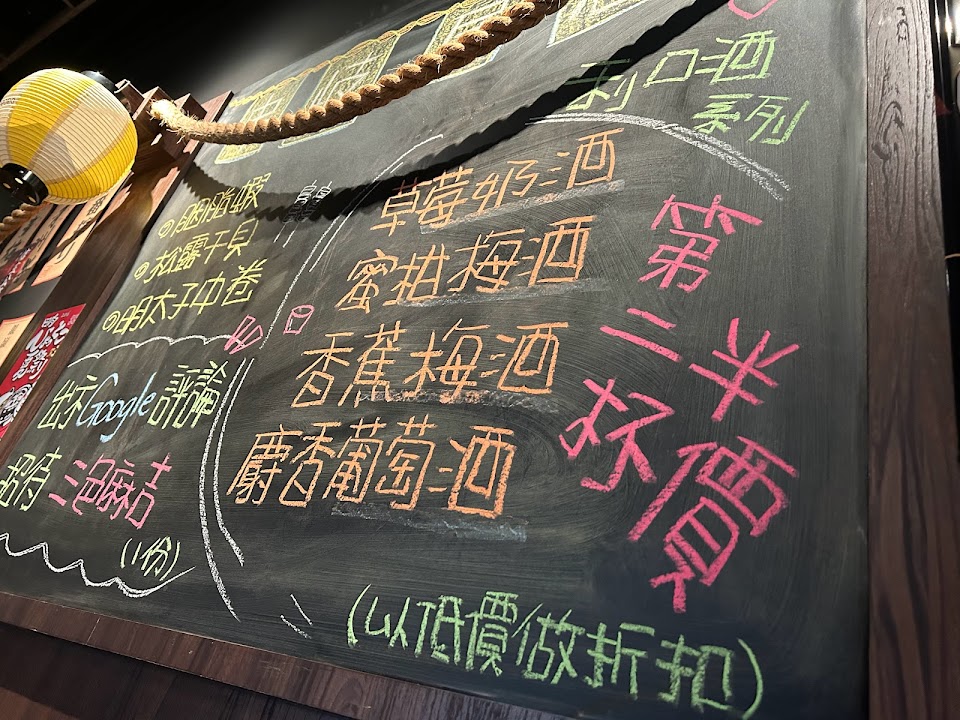 利口酒
系列
草莓奶酒
蜜柑梅酒
香蕉梅酒
麝香葡萄酒
第二杯
半價
(以低價做折扣)
胭脂蝦
松露干貝
明太子中卷
出示Google評論
招待三色麻吉
(1份)